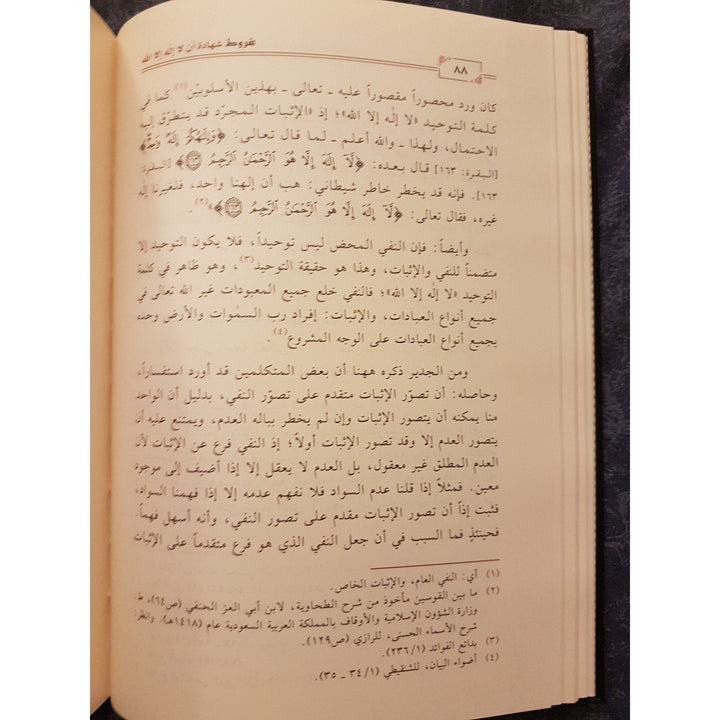 شروط شهادة أن لا إله إلا الله
٨٨
كان ورد محصوراً مقصوراً عليه ـ تعالى ـ بهذين الأسلوبين(١) كما في
كلمة التوحيد «لا إلٰه إلا الله»؛ إذ «الإثبات المجرّد قد يتطرّق إليه
الاحتمال، ولهذا ـ والله أعلم ـ لما قال تعالى: ﴿وَإِلَٰهُكُمْ إِلَٰهٌ وَٰحِدٌ﴾
[البقرة: ١٦٣] قال بعده: ﴿لَّآ إِلَٰهَ إِلَّا هُوَ ٱلرَّحْمَٰنُ ٱلرَّحِيمُ ١٦٣﴾ [البقرة:
١٦٣]. فإنه قد يخطر خاطر شيطاني: هب أن إلهنا واحد، فلغيرنا إلٰه
غيره، فقال تعالى: ﴿لَّآ إِلَٰهَ إِلَّا هُوَ ٱلرَّحْمَٰنُ ٱلرَّحِيمُ ١٦٣﴾»(٢).
وأيضاً: فإن النفي المحض ليس توحيداً، فلا يكون التوحيد إلا
متضمناً للنفي والإثبات، وهذا هو حقيقة التوحيد(٣)، وهو ظاهر في كلمة
التوحيد «لا إلٰه إلا الله»؛ فالنفي خلع جميع المعبودات غير الله تعالى في
جميع أنواع العبادات، والإثبات: إفراد رب السمٰوات والأرض وحده
بجميع أنواع العبادات على الوجه المشروع(٤).
ومن الجدير ذكره ههنا أن بعض المتكلمين قد أورد استفساراً،
وحاصله: أن تصوّر الإثبات متقدم على تصوّر النفي، بدليل أن الواحد
منا يمكنه أن يتصور الإثبات وإن لم يخطر بباله العدم، ويمتنع عليه أن
يتصور العدم إلا وقد تصور الإثبات أولاً؛ إذ النفي فرع عن الإثبات لأن
العدم المطلق غير معقول، بل العدم لا يعقل إلا إذا أضيف إلى موجود
معين. فمثلاً إذا قلنا عدم السواد فلا نفهم عدمه إلا إذا فهمنا السواد،
فثبت إذاً أن تصور الإثبات مقدم على تصور النفي، وأنه أسهل فهماً.
فحينئذٍ فما السبب في أن جعل النفي الذي هو فرع متقدماً على الإثبات
(١) أي: النفي العام، والإثبات الخاص.
(٢) ما بين القوسين مأخوذ من شرح الطحاوية، لابن أبي العز الحنفي (ص٦٤)، ط.
وزارة الشؤون الإسلامية والأوقاف بالمملكة العربية السعودية عام (١٤١٨هـ). وانظر:
شرح الأسماء الحسنى، للرازي (ص١٢٩).
(٣) بدائع الفوائد (١/٢٣٦).
(٤) أضواء البيان، للشنقيطي (١/ ٣٤ ـ ٣٥).